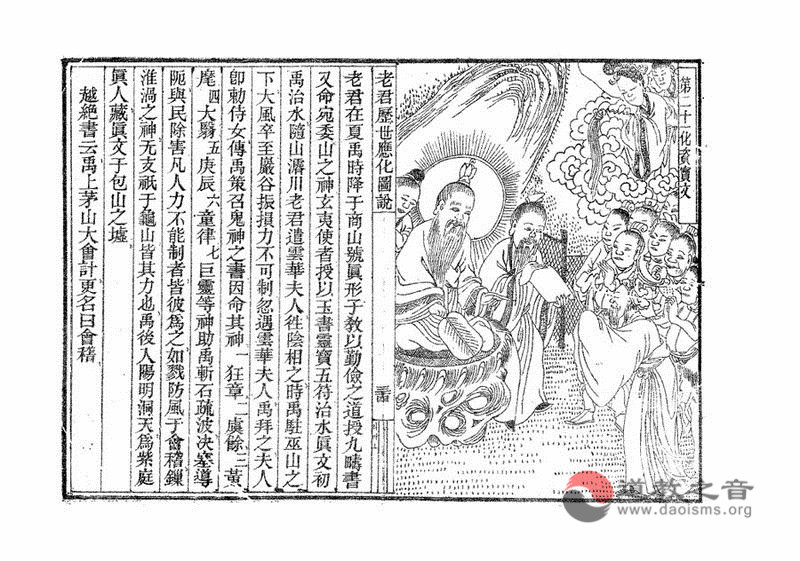 第二十一化賫寶文
老君歷世應化圖說
老君在夏禹時降于商山號眞形子教以勤儉之道授九疇書
又命宛委山之神玄夷使者授以玉書靈寶五符治水眞文初
禹治水隨山濬川老君遣雲華夫人徃陰相之時禹駐巫山之
下大風卒至巖谷振損力不可制忽遇雲華夫人禹拜之夫人
卽勅侍女傳禹策召鬼神之書因命其神一狂章二虞餘三黃
麾四大翳五庚辰六童律七巨靈等神助禹斬石疏波决塞導
阨與民除害凡人力不能制者皆彼爲之如戮防風于會稽鏁
淮渦之神无支祇于龜山皆其力也禹後入陽明洞天爲紫庭
眞人藏眞文于包山之墟
越絶書云禹上茅山大會計更名曰會稽
道教之音
www.daoisms.org